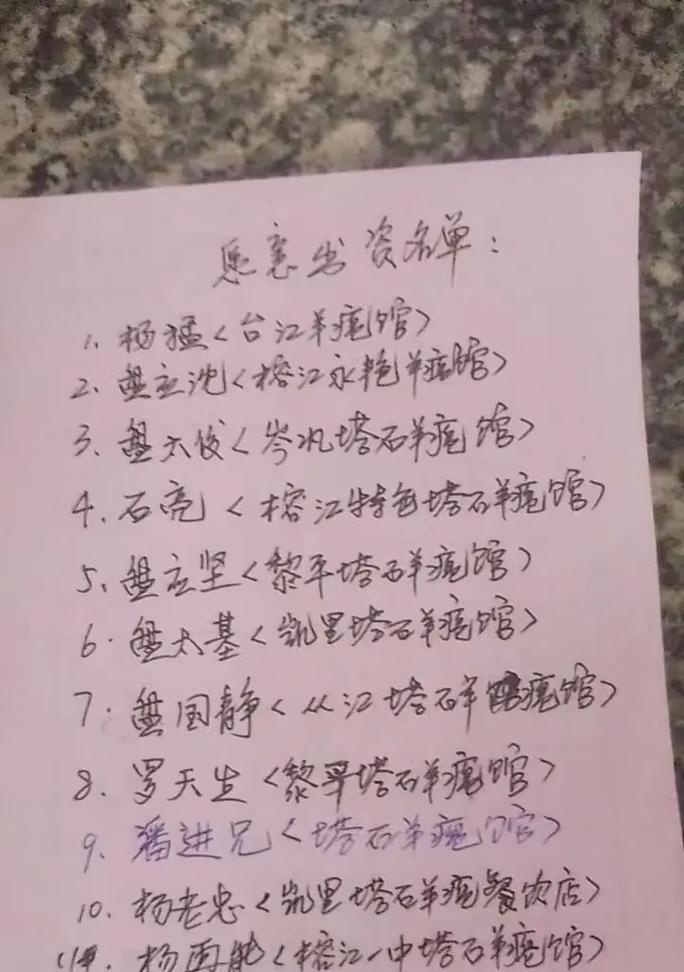 愿意出资名单：
1. 杨猛<台江羊瘪馆>
2. 盘应沈<榕江永艳羊瘪馆>
3. 盘大俊<岑巩塔石羊瘪馆>
4. 石亮<榕江特色塔石羊瘪馆>
5. 盘应坚<黎平塔石羊瘪馆>
6. 盘太基<凯里塔石羊瘪馆>
7. 盘国静<从江塔石羊瘪馆>
8. 罗天生<黎平塔石羊瘪馆>
9. 潘进兄<塔石羊瘪馆>
10. 杨老忠<凯里塔石羊瘪餐饮店>
杨再<榕江一中塔石羊瘪馆>